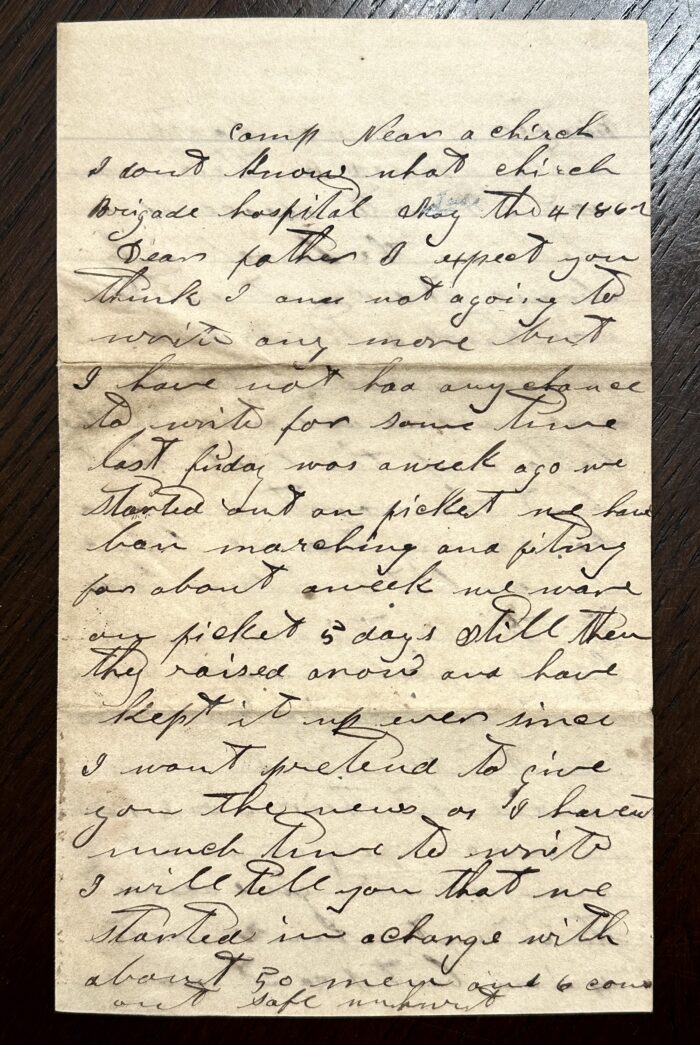 Camp Near a chirch
I dont know what chirch
Brigade hospital May the 4 1862
Dear father I expect you
think I am not agoing to
write any more but
I have not had any chance
to write for some time
last friday was aweek ago we
started out on picket we have
ban marching and fiting
for about aweek we ware
on picket 5 days still then
they raised arow and have
kept it up ever since
I wont pretend to give
you the news as I havent
much time to write
I will tell you that we
started in acharge with
about 50 men and 6 come
out safe unhurt